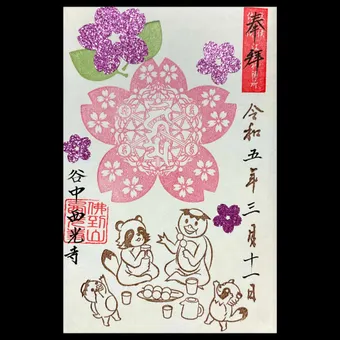 奉拝
令和五年三月十一日
谷中西光寺